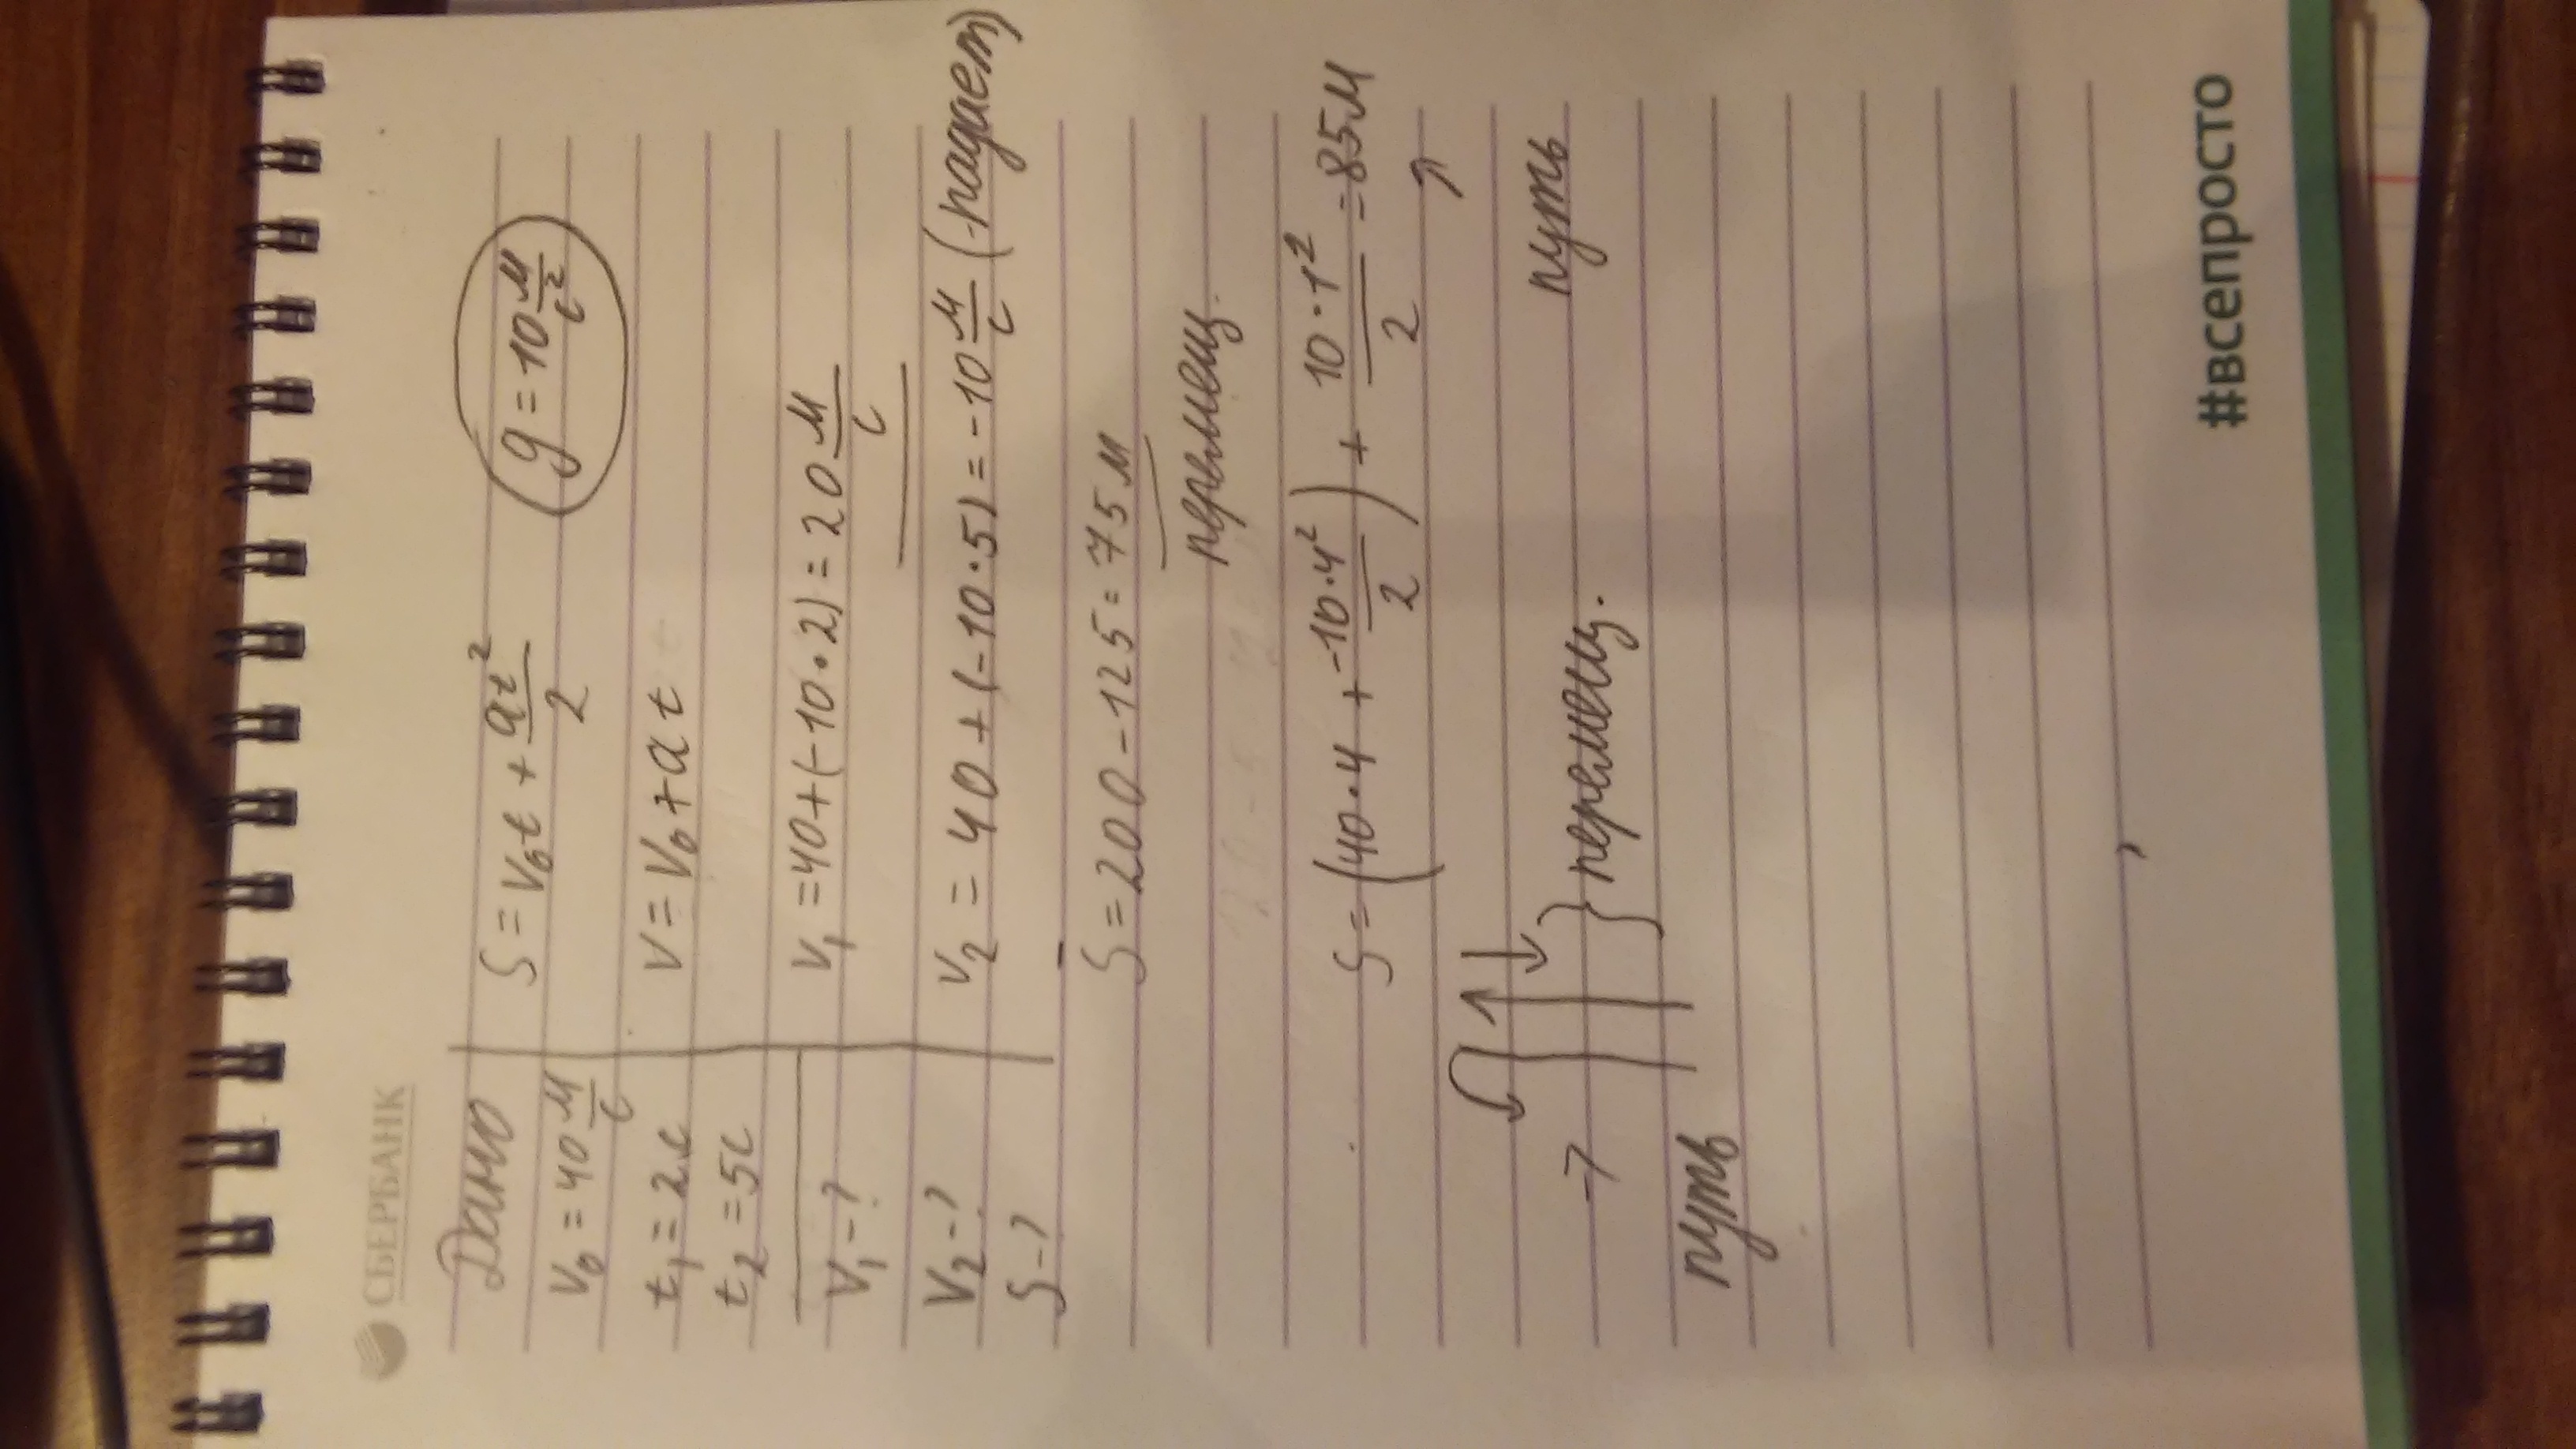 СБЕРБАНК
Дано
V₀ = 40 м/с
t₁ = 2с
t₂ = 5с
V₁ - ?
V₂ - ?
S - ?
S = V₀t + at²/2
g = 10 м/с²
V = V₀ + at
V₁ = 40 + (-10·2) = 20 м/с
V₂ = 40 + (-10·5) = -10 м/с (-падает)
S = 200 - 125 = 75 м
перемещ.
S = (40·4 + -10·4²/2) + 10·1²/2 = 85 м
путь
} перемещ.
путь
#всепросто